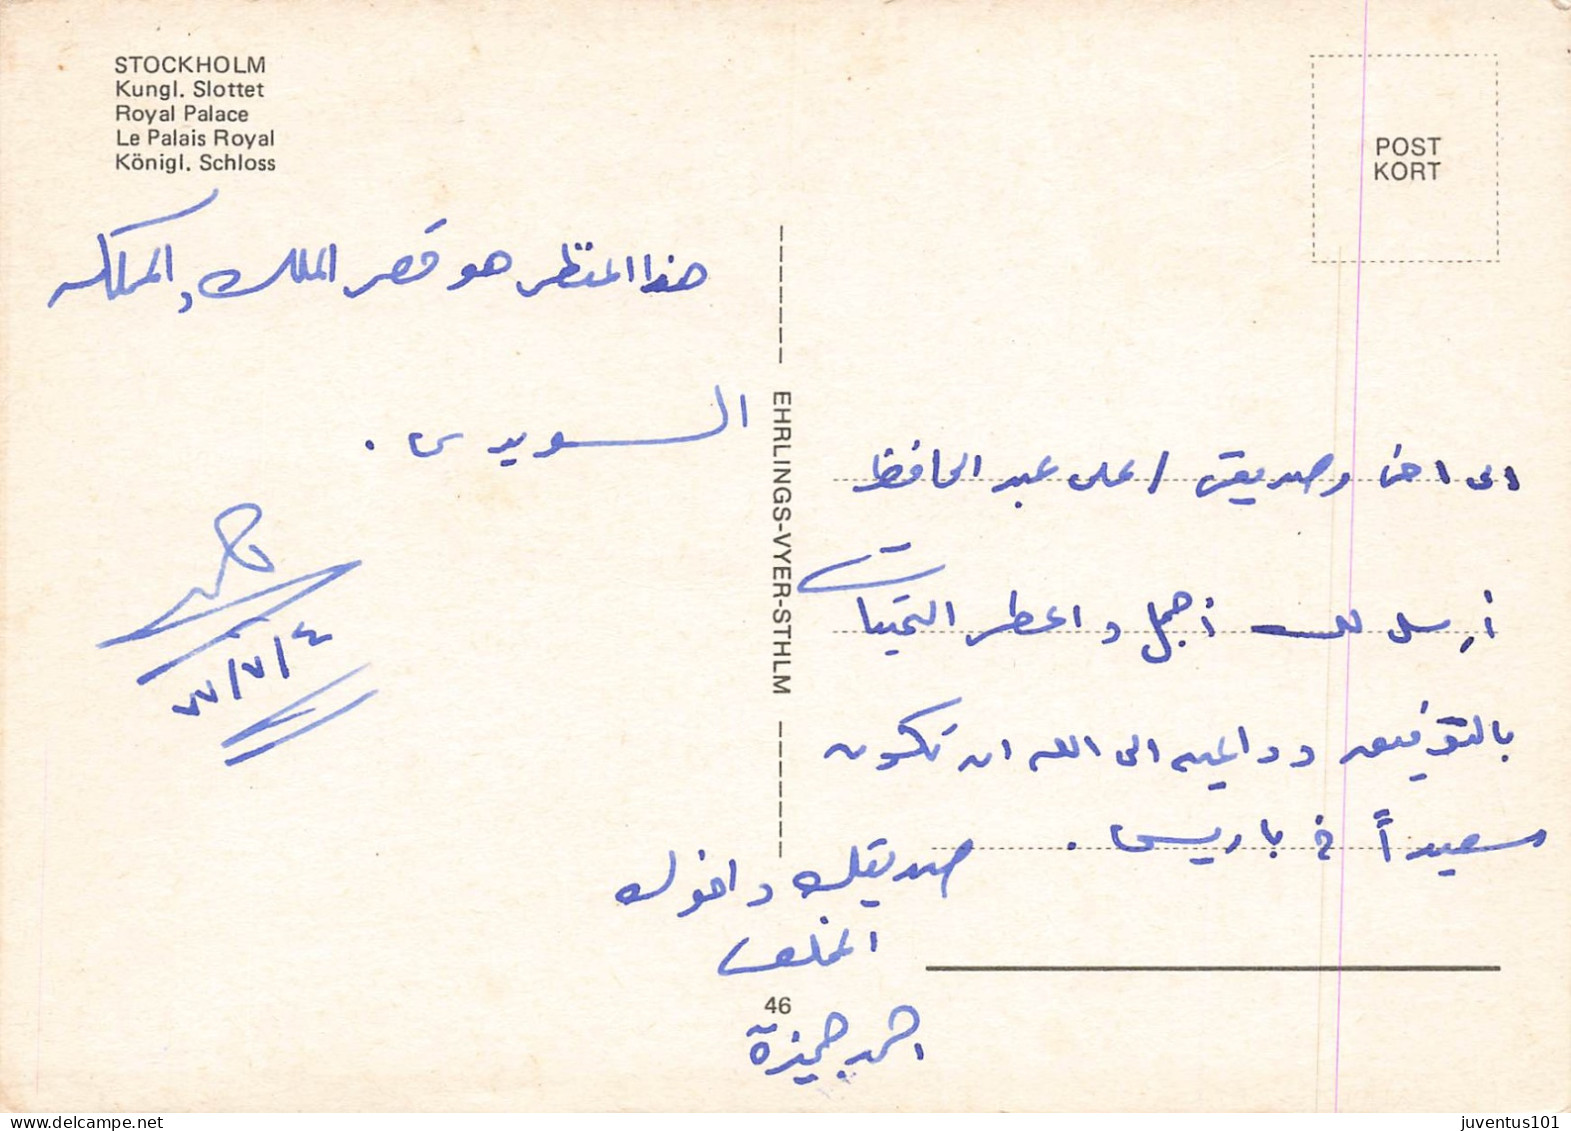 STOCKHOLM
Kungl. Slottet
Royal Palace
Le Palais Royal
Königl. Schloss
POST
KORT
هذا المنظر هو قصر الملك والمملكه
السويدى .
٤/٧/٧٣
EHRLINGS-VYER-STHLM
الى اخى وصديقى / على عبد الحافظ
أرسل لك أجمل واعطر التحيات
بالتوفيق وداعيه الى الله ان تكون
سعيداً فى باريس .
صديقك واخوك
المخلص
احمد حمزة
46
juventus101